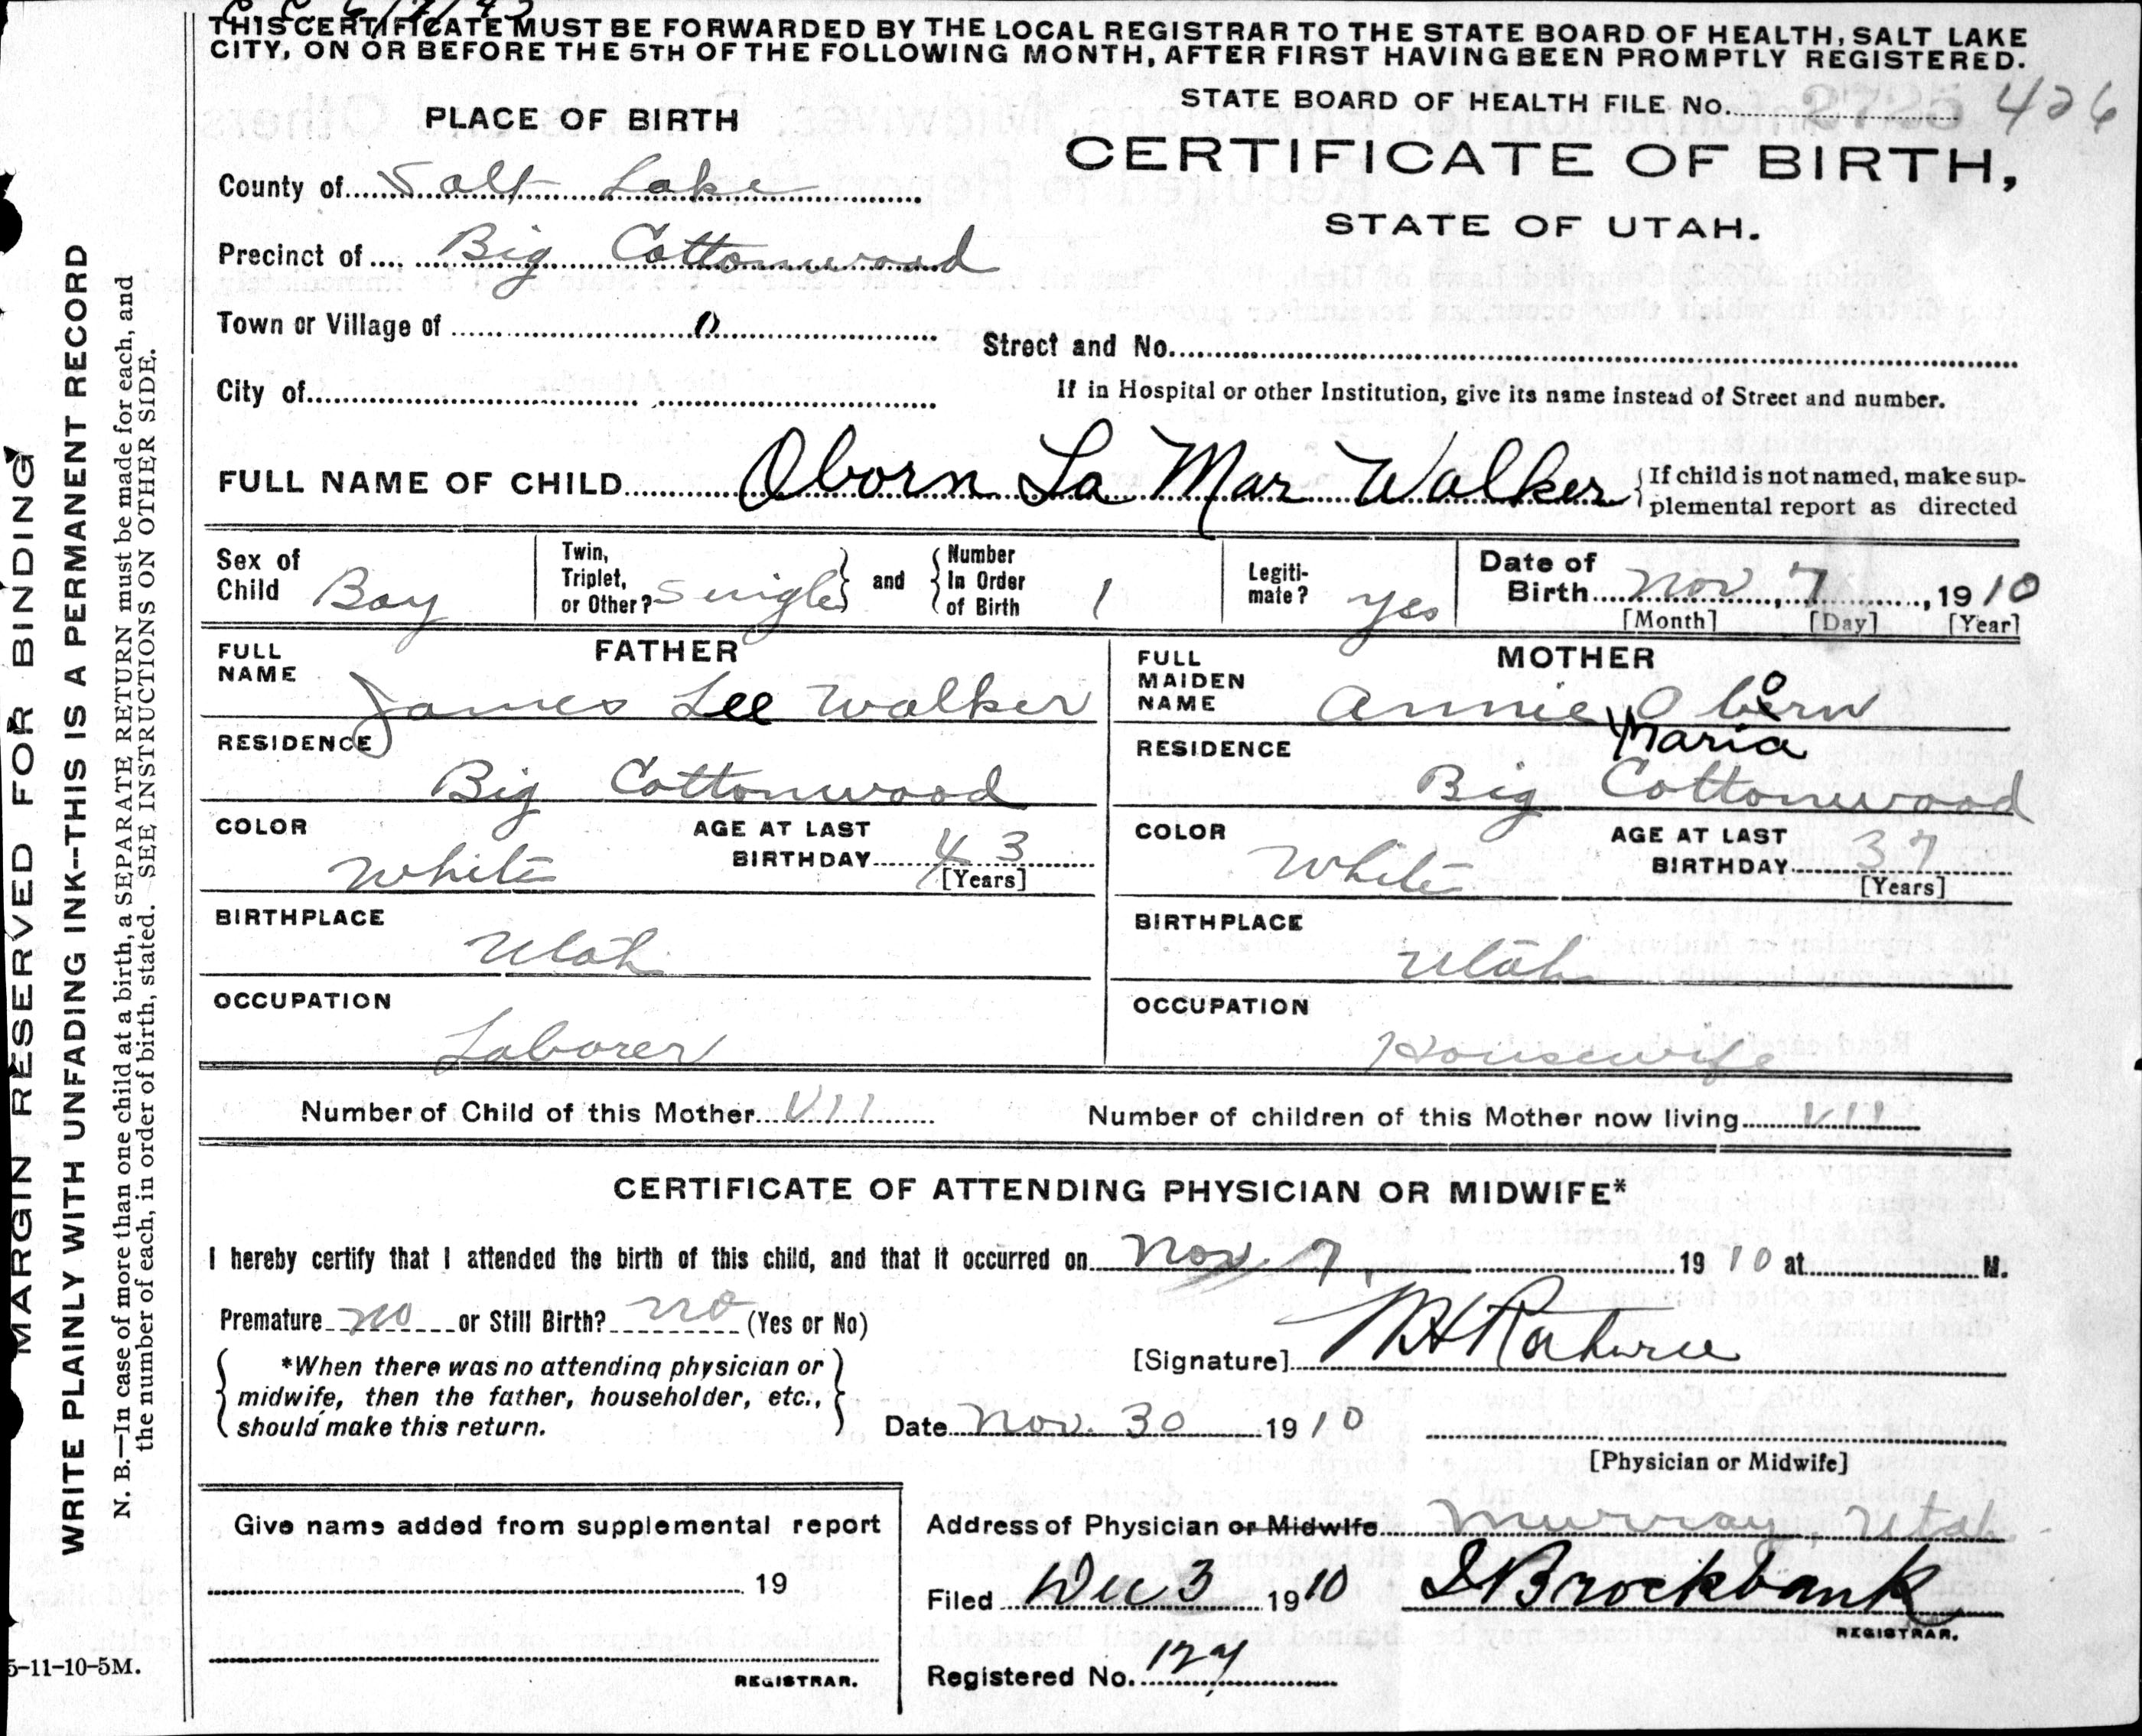 C C 6/7/42
THIS CERTIFICATE MUST BE FORWARDED BY THE LOCAL REGISTRAR TO THE STATE BOARD OF HEALTH, SALT LAKE
CITY, ON OR BEFORE THE 5TH OF THE FOLLOWING MONTH, AFTER FIRST HAVING BEEN PROMPTLY REGISTERED.
STATE BOARD OF HEALTH FILE No. 426
PLACE OF BIRTH
CERTIFICATE OF BIRTH,
STATE OF UTAH.
County of Salt Lake
Precinct of Big Cottonwood
Town or Village of 0
Street and No.
City of
If in Hospital or other Institution, give its name instead of Street and number.
FULL NAME OF CHILD Oborn La Mar Walker { If child is not named, make sup-
plemental report as directed
Sex of Child Boy
Twin, Triplet, or Other? Single } and { Number In Order of Birth 1
Legiti-mate? yes
Date of Birth Nov, 7, 1910
[Month] [Day] [Year]
FATHER
FULL NAME James Lee Walker
RESIDENCE Big Cottonwood
COLOR White AGE AT LAST BIRTHDAY 43 [Years]
BIRTHPLACE Utah
OCCUPATION Laborer
MOTHER
FULL MAIDEN NAME Annie Maria Oborn
RESIDENCE Big Cottonwood
COLOR White AGE AT LAST BIRTHDAY 37 [Years]
BIRTHPLACE Utah
OCCUPATION Housewife
Number of Child of this Mother VII Number of children of this Mother now living VII
CERTIFICATE OF ATTENDING PHYSICIAN OR MIDWIFE*
I hereby certify that I attended the birth of this child, and that it occurred on Nov. 7, 1910 at M.
Premature no or Still Birth? no (Yes or No)
*When there was no attending physician or
midwife, then the father, householder, etc.,
should make this return.
[Signature]
Date Nov. 30 1910
[Physician or Midwife]
Give name added from supplemental report
19
REGISTRAR.
Address of Physician or Midwife Murray, Utah
Filed Dec 3 1910 Brockbank
REGISTRAR.
Registered No. 127
MARGIN RESERVED FOR BINDING
WRITE PLAINLY WITH UNFADING INK--THIS IS A PERMANENT RECORD
N. B.—In case of more than one child at a birth, a SEPARATE RETURN must be made for each, and
the number of each, in order of birth, stated. SEE INSTRUCTIONS ON OTHER SIDE.
5-11-10-5M.